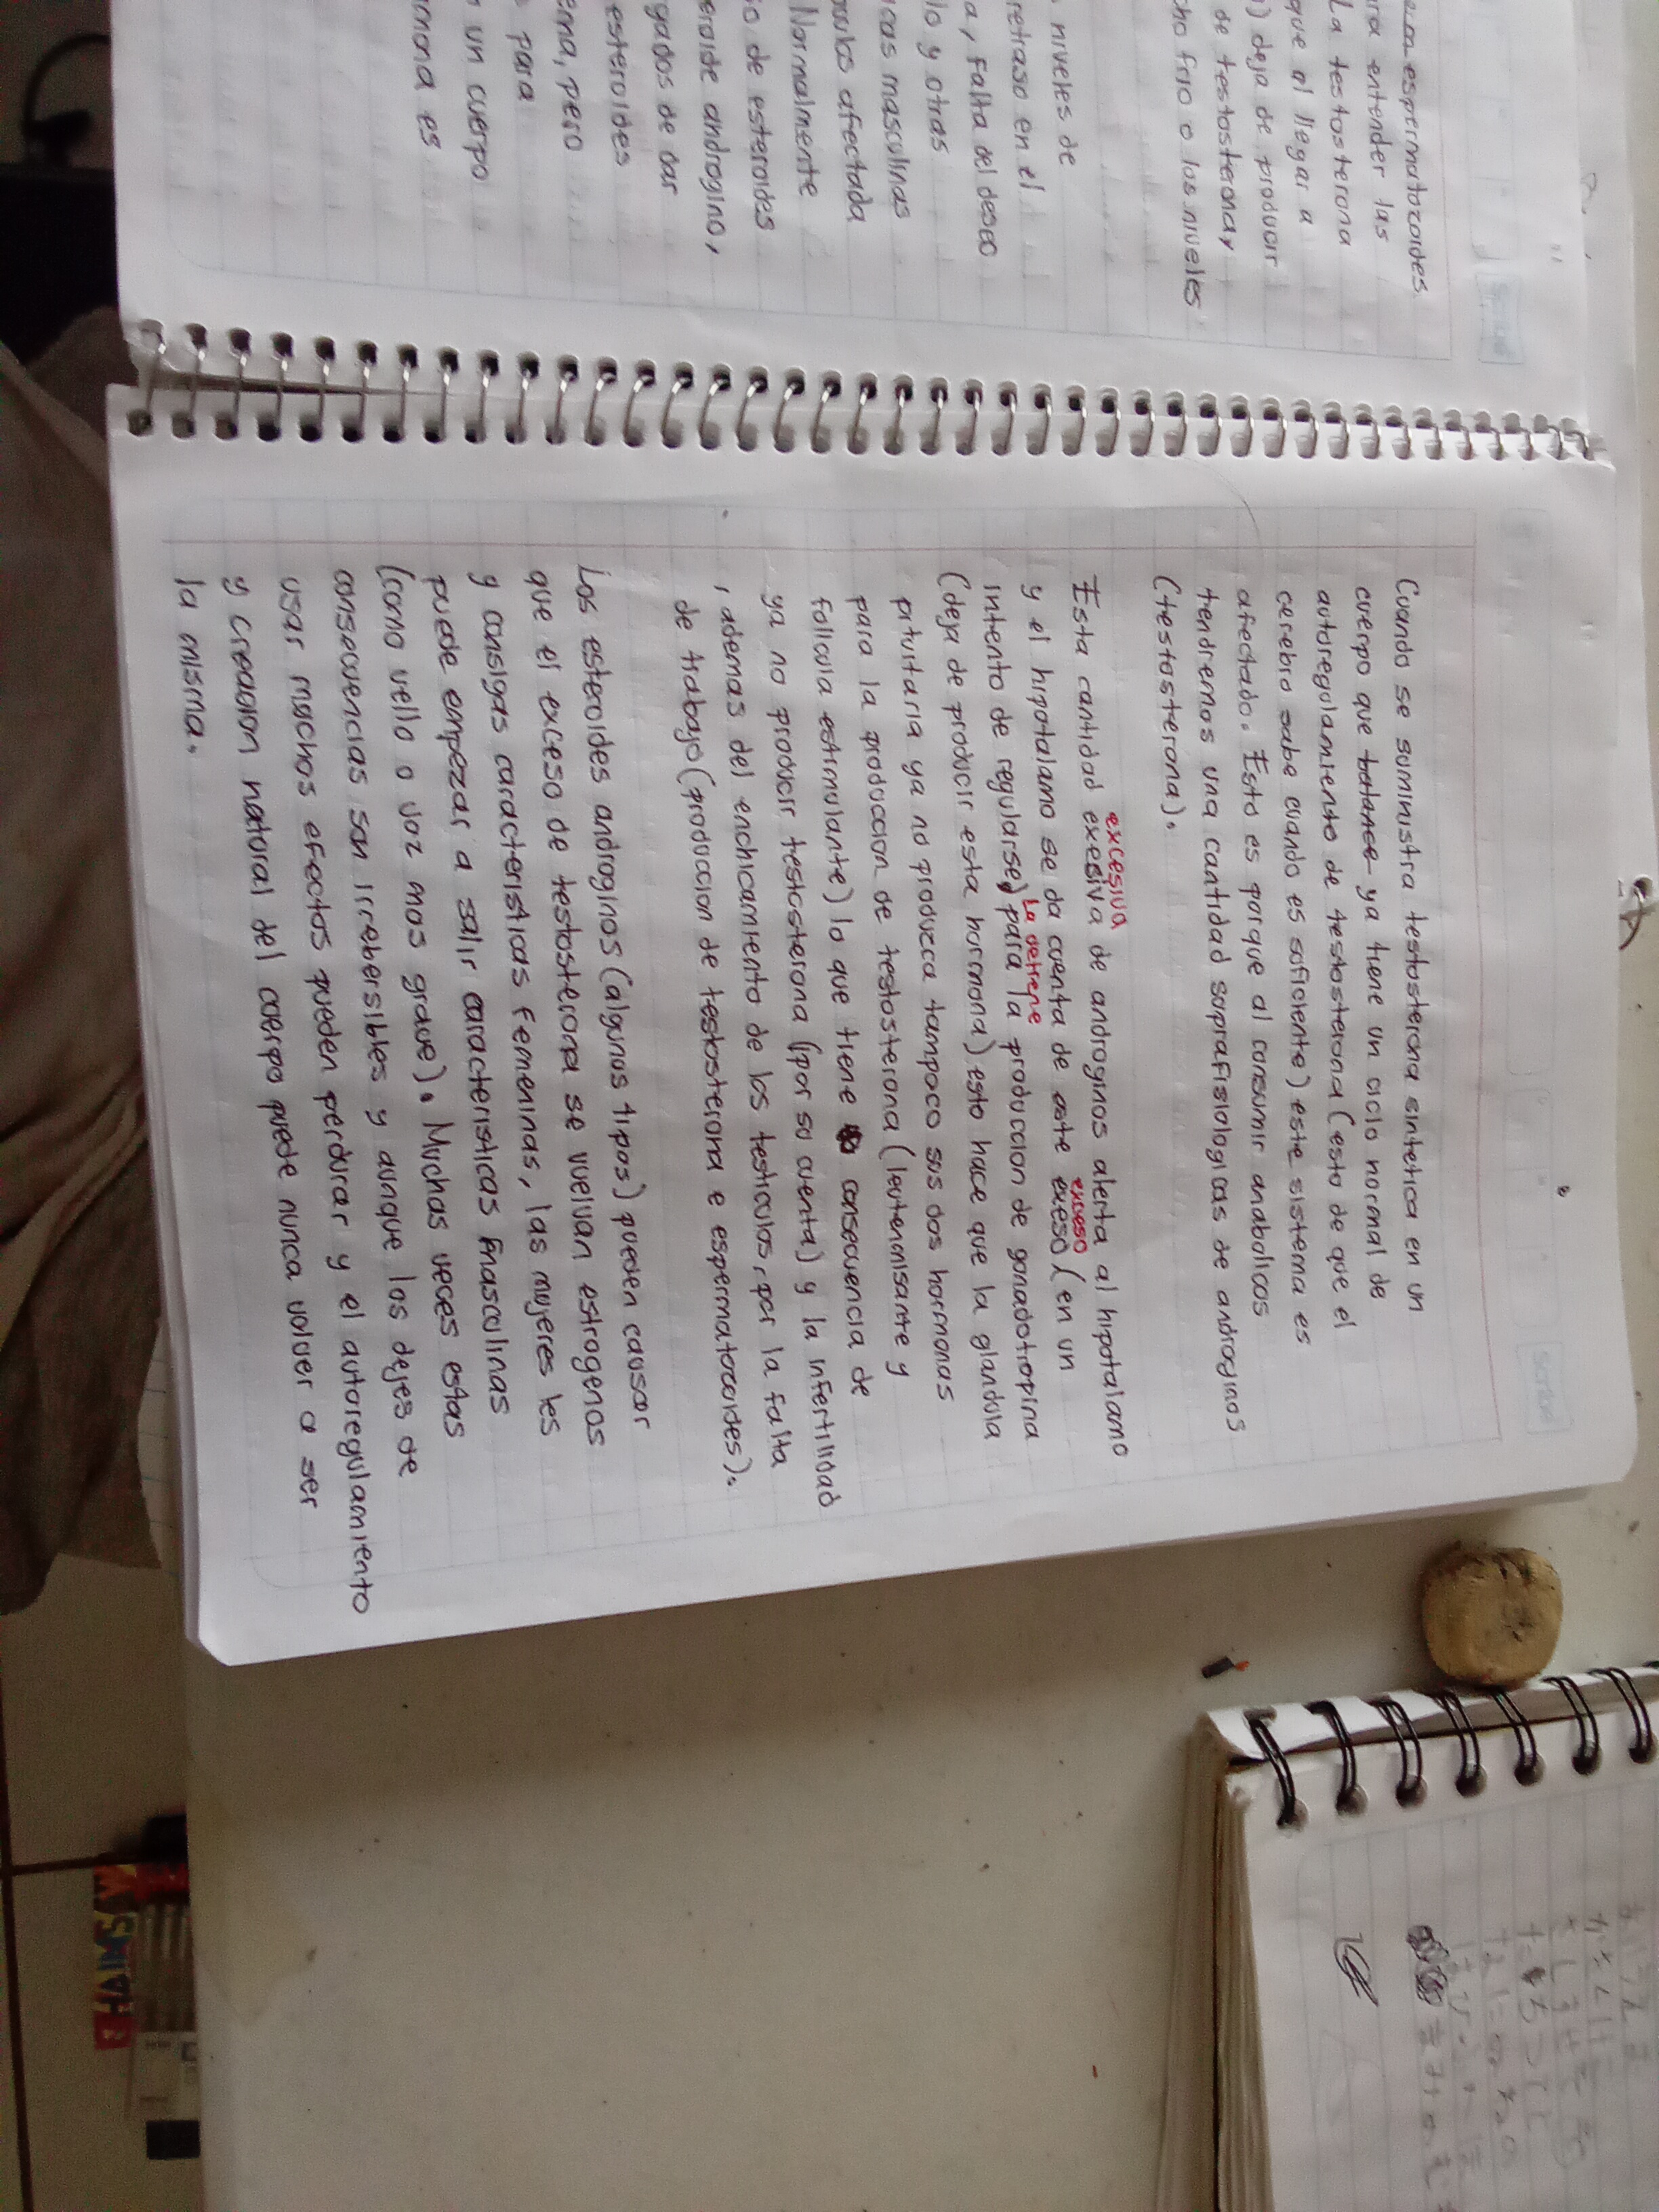 espermatozoides.
ara entender las
La testosterona
que al llegar a
) deja de producir
de testosterona y
cho frio o los niveles
niveles de
retraso en el
a, falta del deseo
lo y otras
icas masculinas
culos afectada
Normalmente
o de esteroides
eroide androgino,
gados de dar
esteroides
ema, pero
para
un cuerpo
mona es
Cuando se suministra testosterona sintetica en un
cuerpo que balance ya tiene un ciclo normal de
autoregulamiento de testosterona (esto de que el
cerebro sabe cuando es suficiente) este sistema es
afectado. Esto es porque al consumir anabolicos
tendremos una cantidad suprafisiologicas de androginos
(testosterona).
excesiva
Esta cantidad exesiva de androginos alerta al hipotalamo
exceso
y el hipotalamo se da cuenta de este exeso (en un
La detiene
intento de regularse) para la produccion de gonadotropina
(deja de producir esta hormona) esto hace que la glandula
pituitaria ya no produzca tampoco sus dos hormonas
para la produccion de testosterona (leutenmisante y
folicula estimulante) lo que tiene consecuencia de
ya no producir testosterona (por su cuenta) y la infertilidad
, ademas del enchicamiento de los testiculos, por la falta
de trabajo (produccion de testosterona e espermatozoides).
Los esteroides androginos (algunos tipos) pueden causar
que el exceso de testosterona se vuelvan estrogenos
y consigas caracteristicas femeninas, las mujeres les
puede empezar a salir caracteristicas masculinas
(como vello o voz mas grave). Muchas veces estas
consecuencias son irrebersibles y aunque los dejes de
usar muchos efectos pueden perdurar y el autoregulamiento
y creacion natural del cuerpo puede nunca volver a ser
la misma.